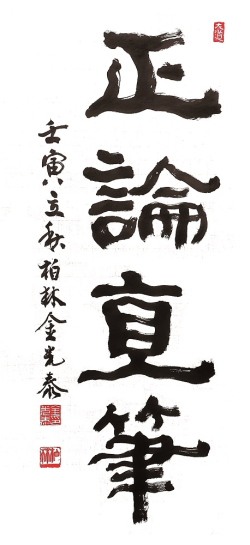 正論直筆
壬寅 立秋 柏林 金光泰